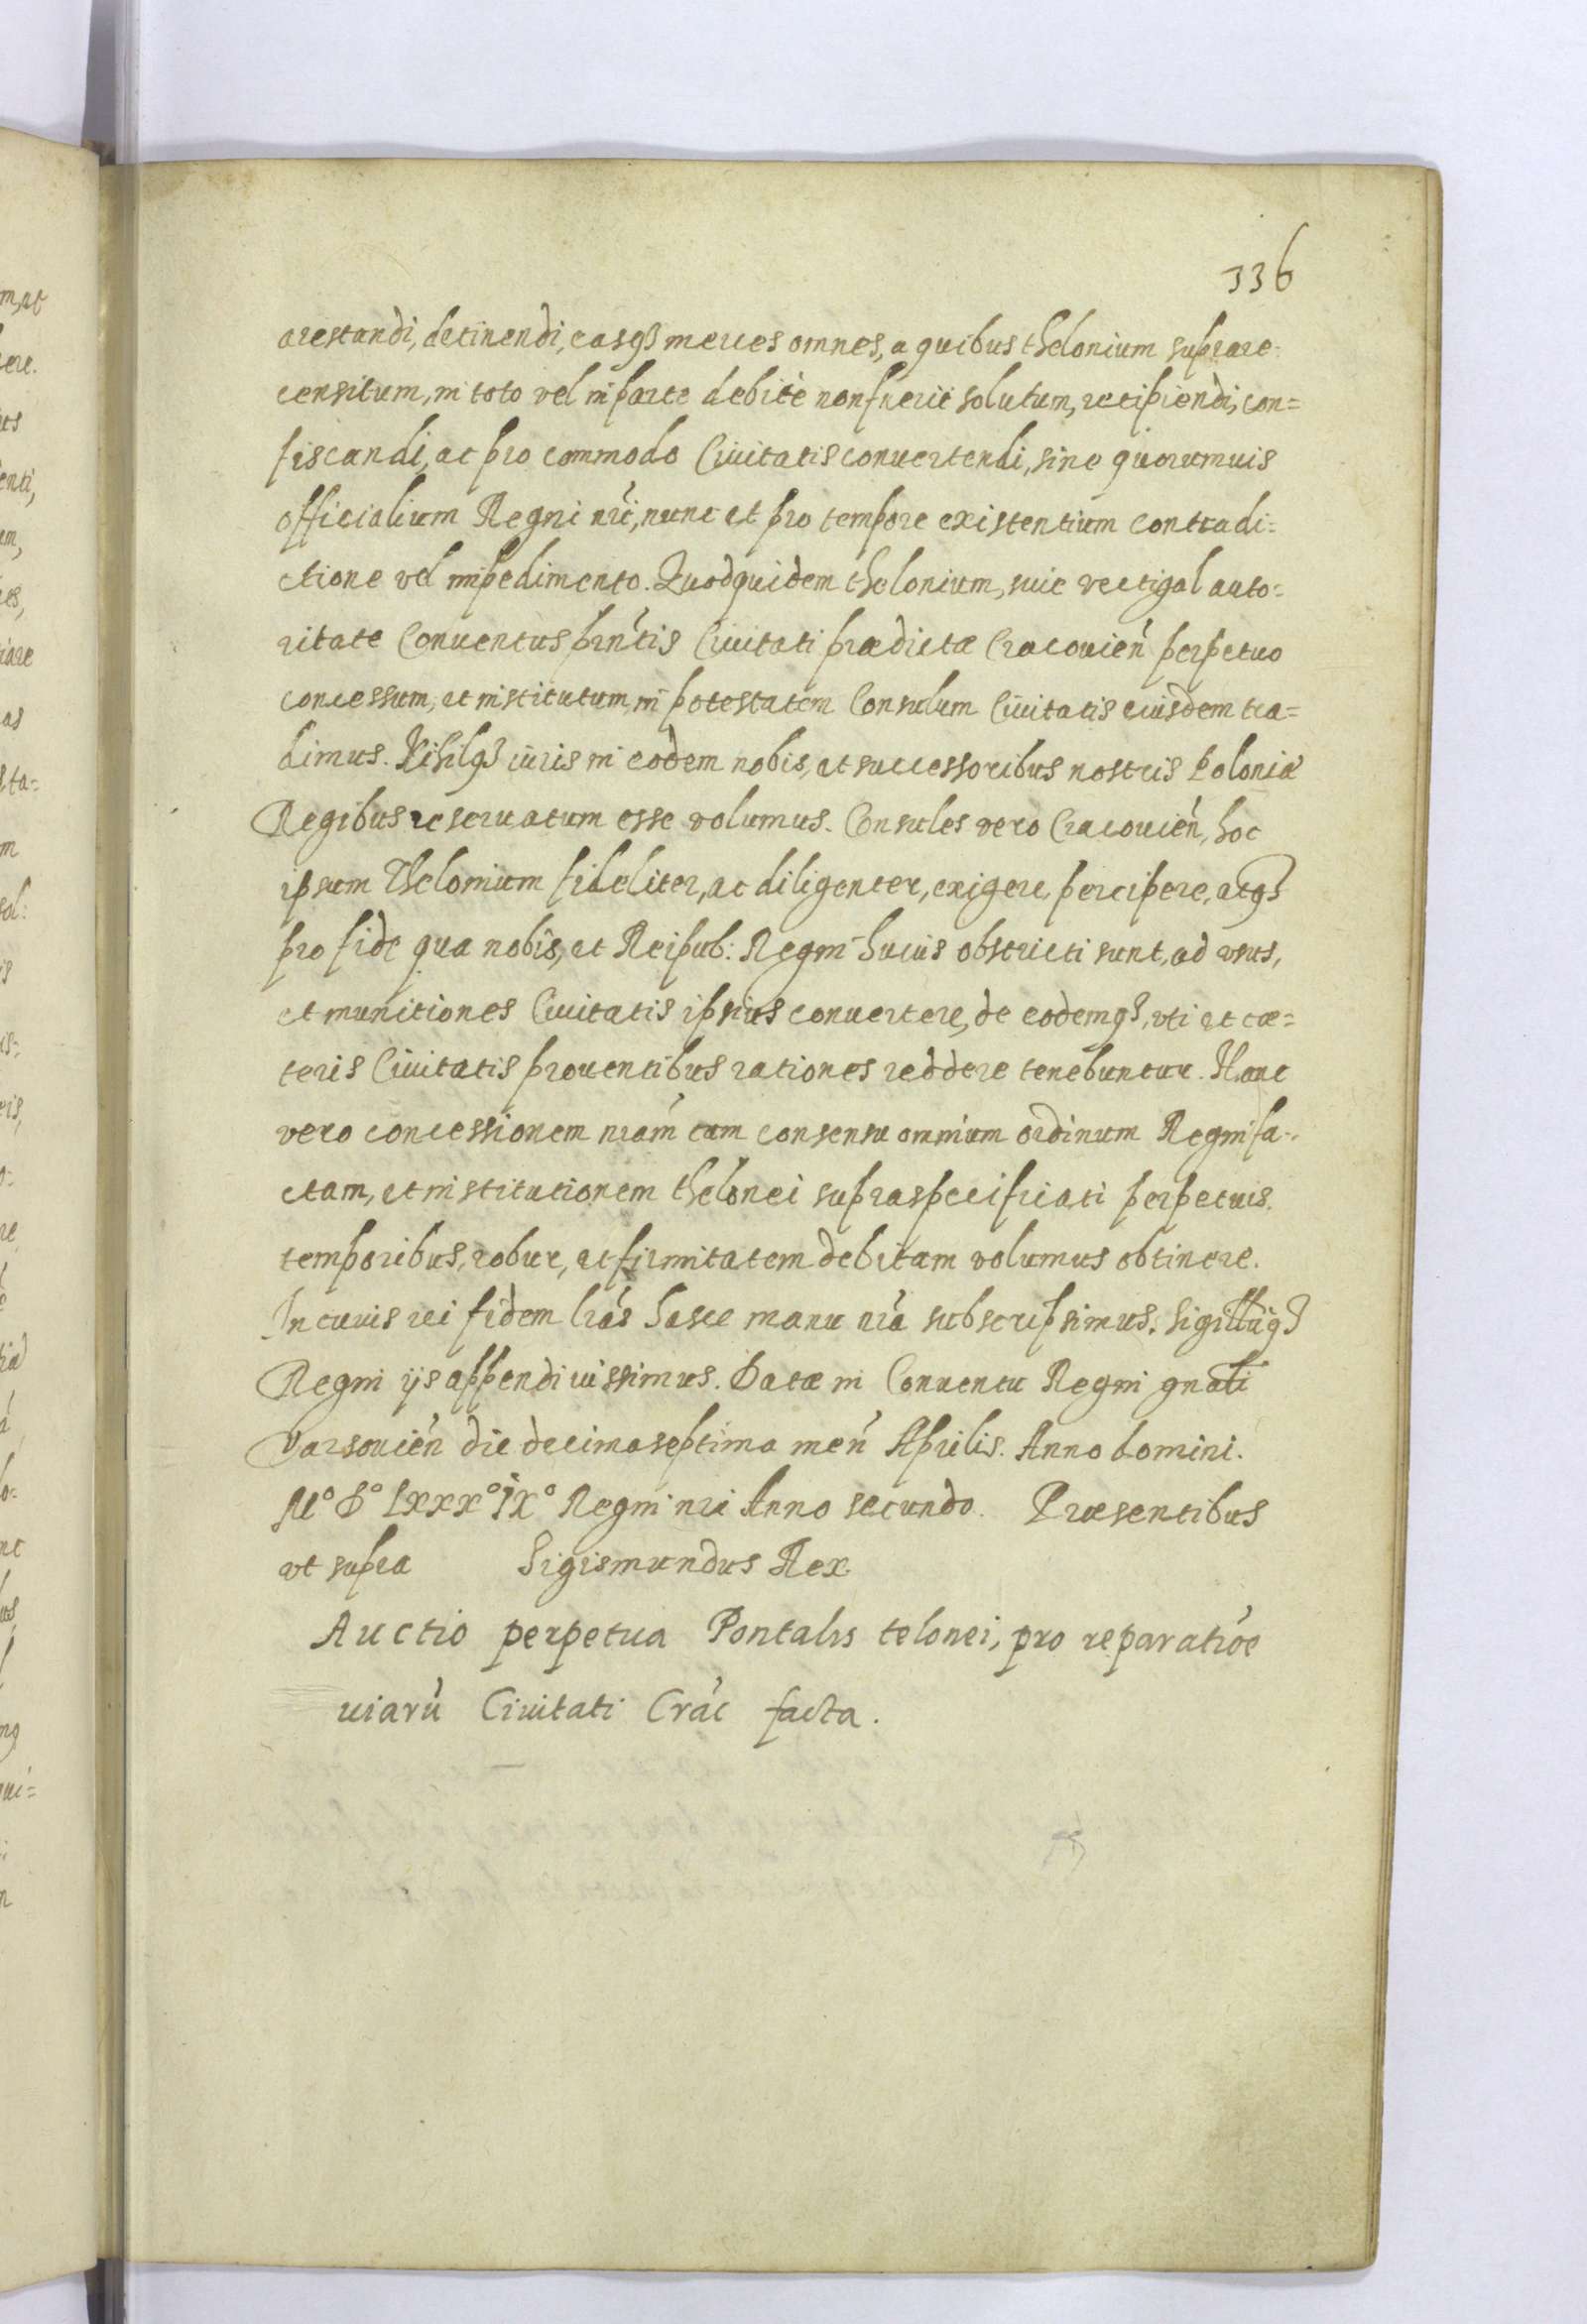 336
arestandi, detinendi, easq3 merces omnes, a quibus thelonium suprare-
censitum, in toto vel in parte debitè non fuerit solutum, recipiendi, con=
fiscandi, ac pro commodo Ciuitatis conuertendi, sine quorumuis
officialium Regni nri, nunc et pro tempore existentium contradi=
ctione vel impedimento. Quodquidem thelonium, siue vectigal auto=
ritate Conuentus prntis Ciuitati prædictæ Cracouien perpetuo
concessum, et institutum, in potestatem Consulum Ciuitatis eiusdem tra=
dimus. Nihilq3 iuris in eodem nobis, et successoribus nostris Poloniæ
Regibus reseruatum esse volumus. Consules vero Cracouien, hoc
ipsum Thelonium fideliter, ac diligenter, exigere, percipere, atq3
pro fide qua nobis, et Reipub: Regni huius obstricti sunt, ad vsus,
et munitiones Ciuitatis ipsius conuertere, de eodemq3, vti et cæ=
teris Ciuitatis prouentibus rationes reddere tenebuntur. Hanc
vero concessionem nram cum consensu omnium ordinum Regni fa-
ctam, et institutionem thelonei supraspecificati perpetuis
temporibus, robur, et firmitatem debitam volumus obtinere.
In cuius rei fidem lras hasce manu nra subscripsimus. Sigilluq3
Regni ijs appendi iussimus. Datæ in Conuentu Regni gnali
Varsouien die decima septima men Aprilis. Anno domini.
M° D° Lxxx° ix° Regni nri Anno secundo. Præsentibus
vt supra Sigismundus Rex.
Auctio perpetua Pontalis telonei, pro reparatioe
uiarū Ciuitati Crac facta.